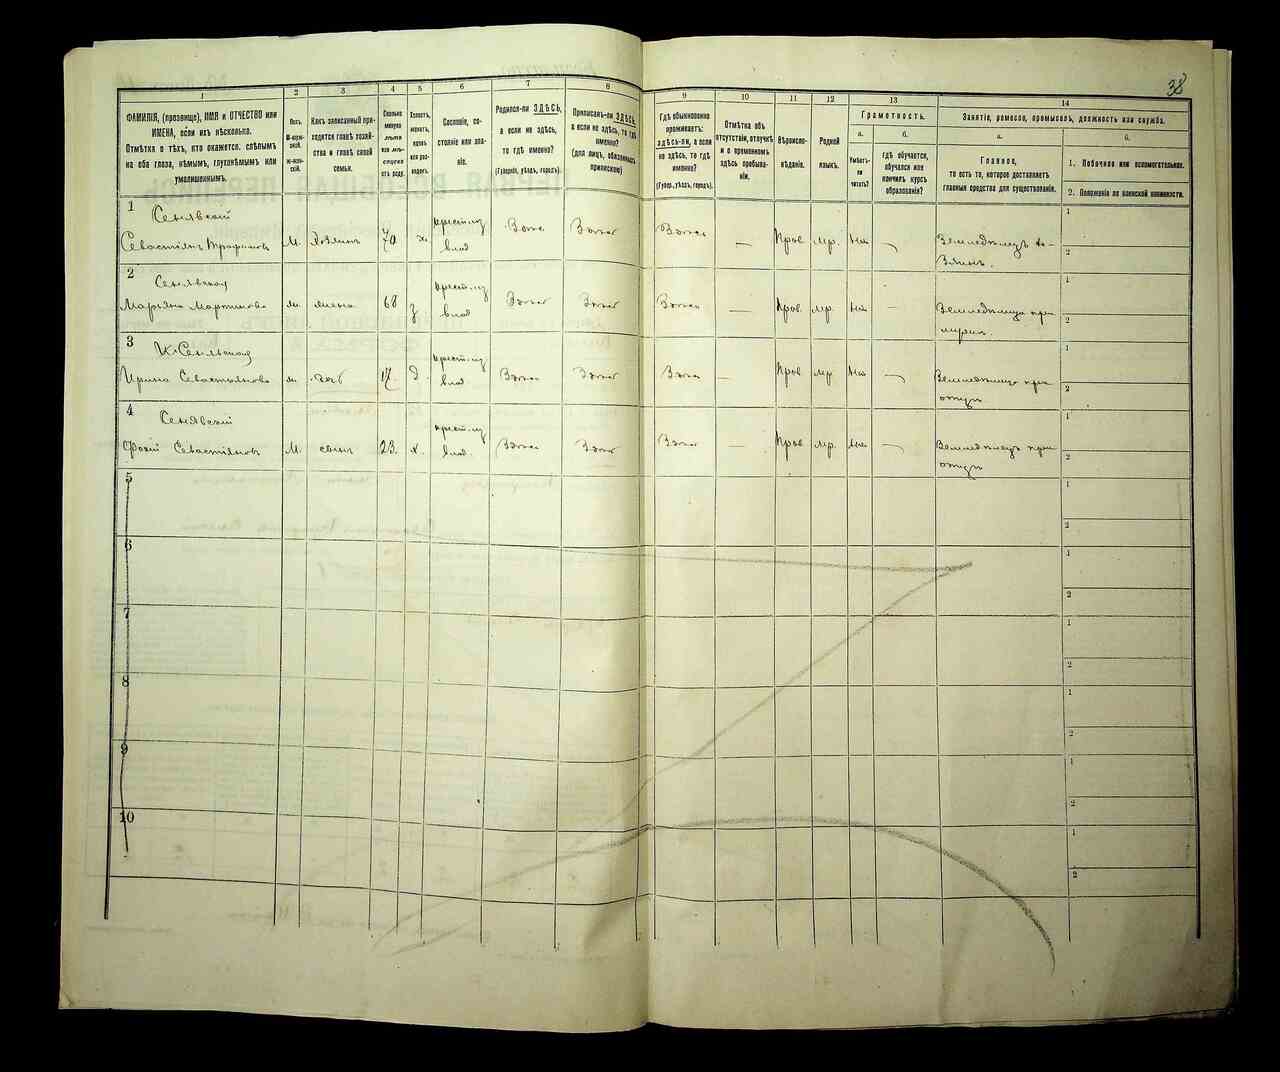 38
1
2
3
4
5
6
7
8
9
10
11
12
13
14
ФАМИЛІЯ, (прозвище), ИМЯ и ОТЧЕСТВО или
ИМЕНА, если ихъ нѣсколько.
Отмѣтка о тѣхъ, кто окажется слѣпымъ
на оба глаза, нѣмымъ, глухонѣмымъ или
умалишеннымъ.
Полъ.
М-мужской.
ж-женскій.
Какъ записанный приходится
главѣ хозяйства
и главѣ своей
семьи.
Сколько
минуло
лѣтъ
или мѣсяцевъ
отъ роду.
Холостъ,
женатъ,
вдовъ
или разведенъ.
Сословіе, состояніе
или званіе.
Родился-ли ЗДѢСЬ,
а если не здѣсь,
то гдѣ именно?
(Губернія, уѣздъ, городъ).
Приписанъ-ли ЗДѢСЬ,
а если не здѣсь, то гдѣ
именно?
(для лицъ, обязанныхъ
припискою)
Гдѣ обыкновенно
проживаетъ:
здѣсь-ли, а если
не здѣсь, то гдѣ
именно?
(Губер., уѣздъ, городъ).
Отмѣтка объ
отсутствіи, отлучкѣ
и о временномъ
здѣсь пребываніи.
Вѣроисповѣданіе.
Родной
языкъ.
Грамотность.
а.
б.
Умѣетъ-ли
читать?
гдѣ обучается,
обучался или
кончилъ курсъ
образованія?
Занятіе, ремесло, промыселъ, должность или служба.
а.
б.
Главное,
то есть то, которое доставляетъ
главныя средства для существованія.
1. Побочное или вспомогательное.
2. Положеніе по воинской повинности.
1
Сенявскій
Севастіянъ Трофимовъ
М.
Хозяинъ
70
х.
крест. из
влад
Здѣсь
Здѣсь
Здѣсь
—
Прав
мр.
Нѣт
—
Земледѣлецъ хозяинъ.
1
2
2
Сенявская
Марьяна Мартинова
ж.
жена
68
з
крест. из
влад
Здѣсь
Здѣсь
Здѣсь
—
Прав
мр.
Нѣт
—
Земледѣлица при
1
2
3
Сенявская
Ирина Севастьянова
ж.
дочь
17.
д.
крест. из
влад
Здѣсь
Здѣсь
Здѣсь
—
Прав
мр
Нѣт
—
Земледѣлица при
отцѣ
1
2
4
Сенявскій
Севастіяновъ
М.
сынъ
23.
х.
крест. из
влад
Здѣсь
Здѣсь
Здѣсь
—
Прав
мр.
Нѣт
—
Земледѣлецъ при
отцѣ
1
2
5
1
2
6
1
2
7
1
2
8
1
2
9
1
2
10
1
2